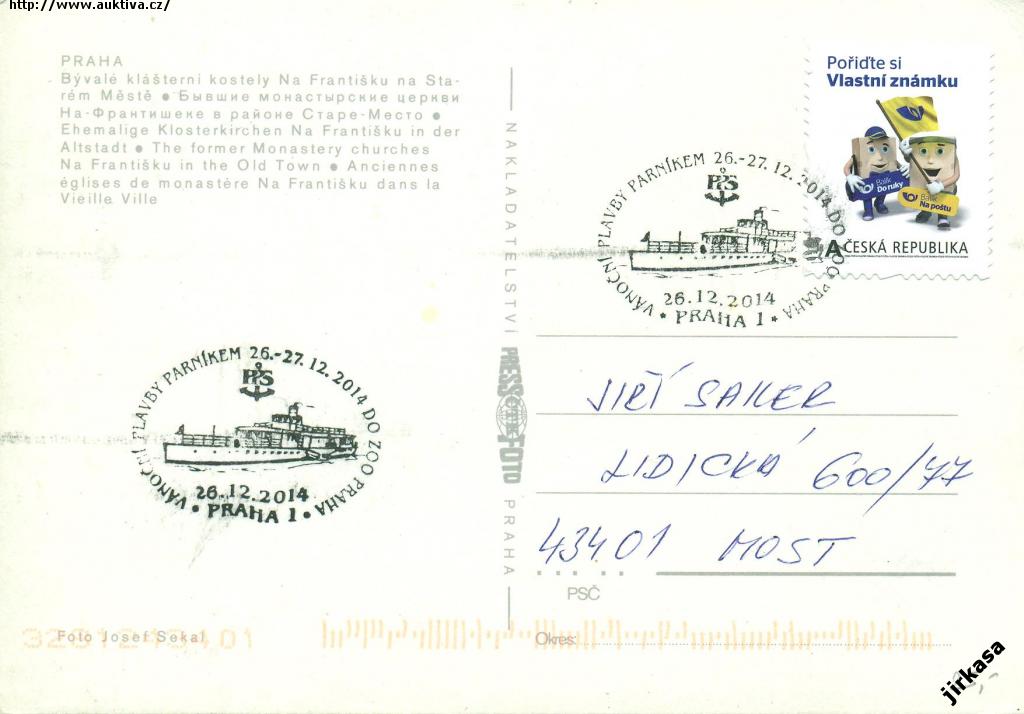 http://www.auktiva.cz/
PRAHA
Bývalé klášterní kostely Na Františku na Sta-
rém Městě ● Бывшие монастырские церкви
На-Франтишеке в районе Старе-Место ●
Ehemalige Klosterkirchen Na Františku in der
Altstadt ● The former Monastery churches
Na Františku in the Old Town ● Anciennes
églises de monastére Na Františku dans la
Vieille Ville
NAKLADATELSTVÍ PRESSFOTO PRAHA
Pořiďte si
Vlastní známku
Balík
Do ruky
Balík
Na poštu
A ČESKÁ REPUBLIKA
VÁNOČNÍ PLAVBY PARNÍKEM 26.-27.12.2014 DO ZOO PRAHA
PPS
26.12.2014
• PRAHA 1 •
VÁNOČNÍ PLAVBY PARNÍKEM 26.-27.12.2014 DO ZOO PRAHA
PPS
26.12.2014
• PRAHA 1 •
JIŘÍ SAKER
LIDICKÁ 600/77
43401 MOST
PSČ
Okres:
Foto Josef Sekal
jirkasa